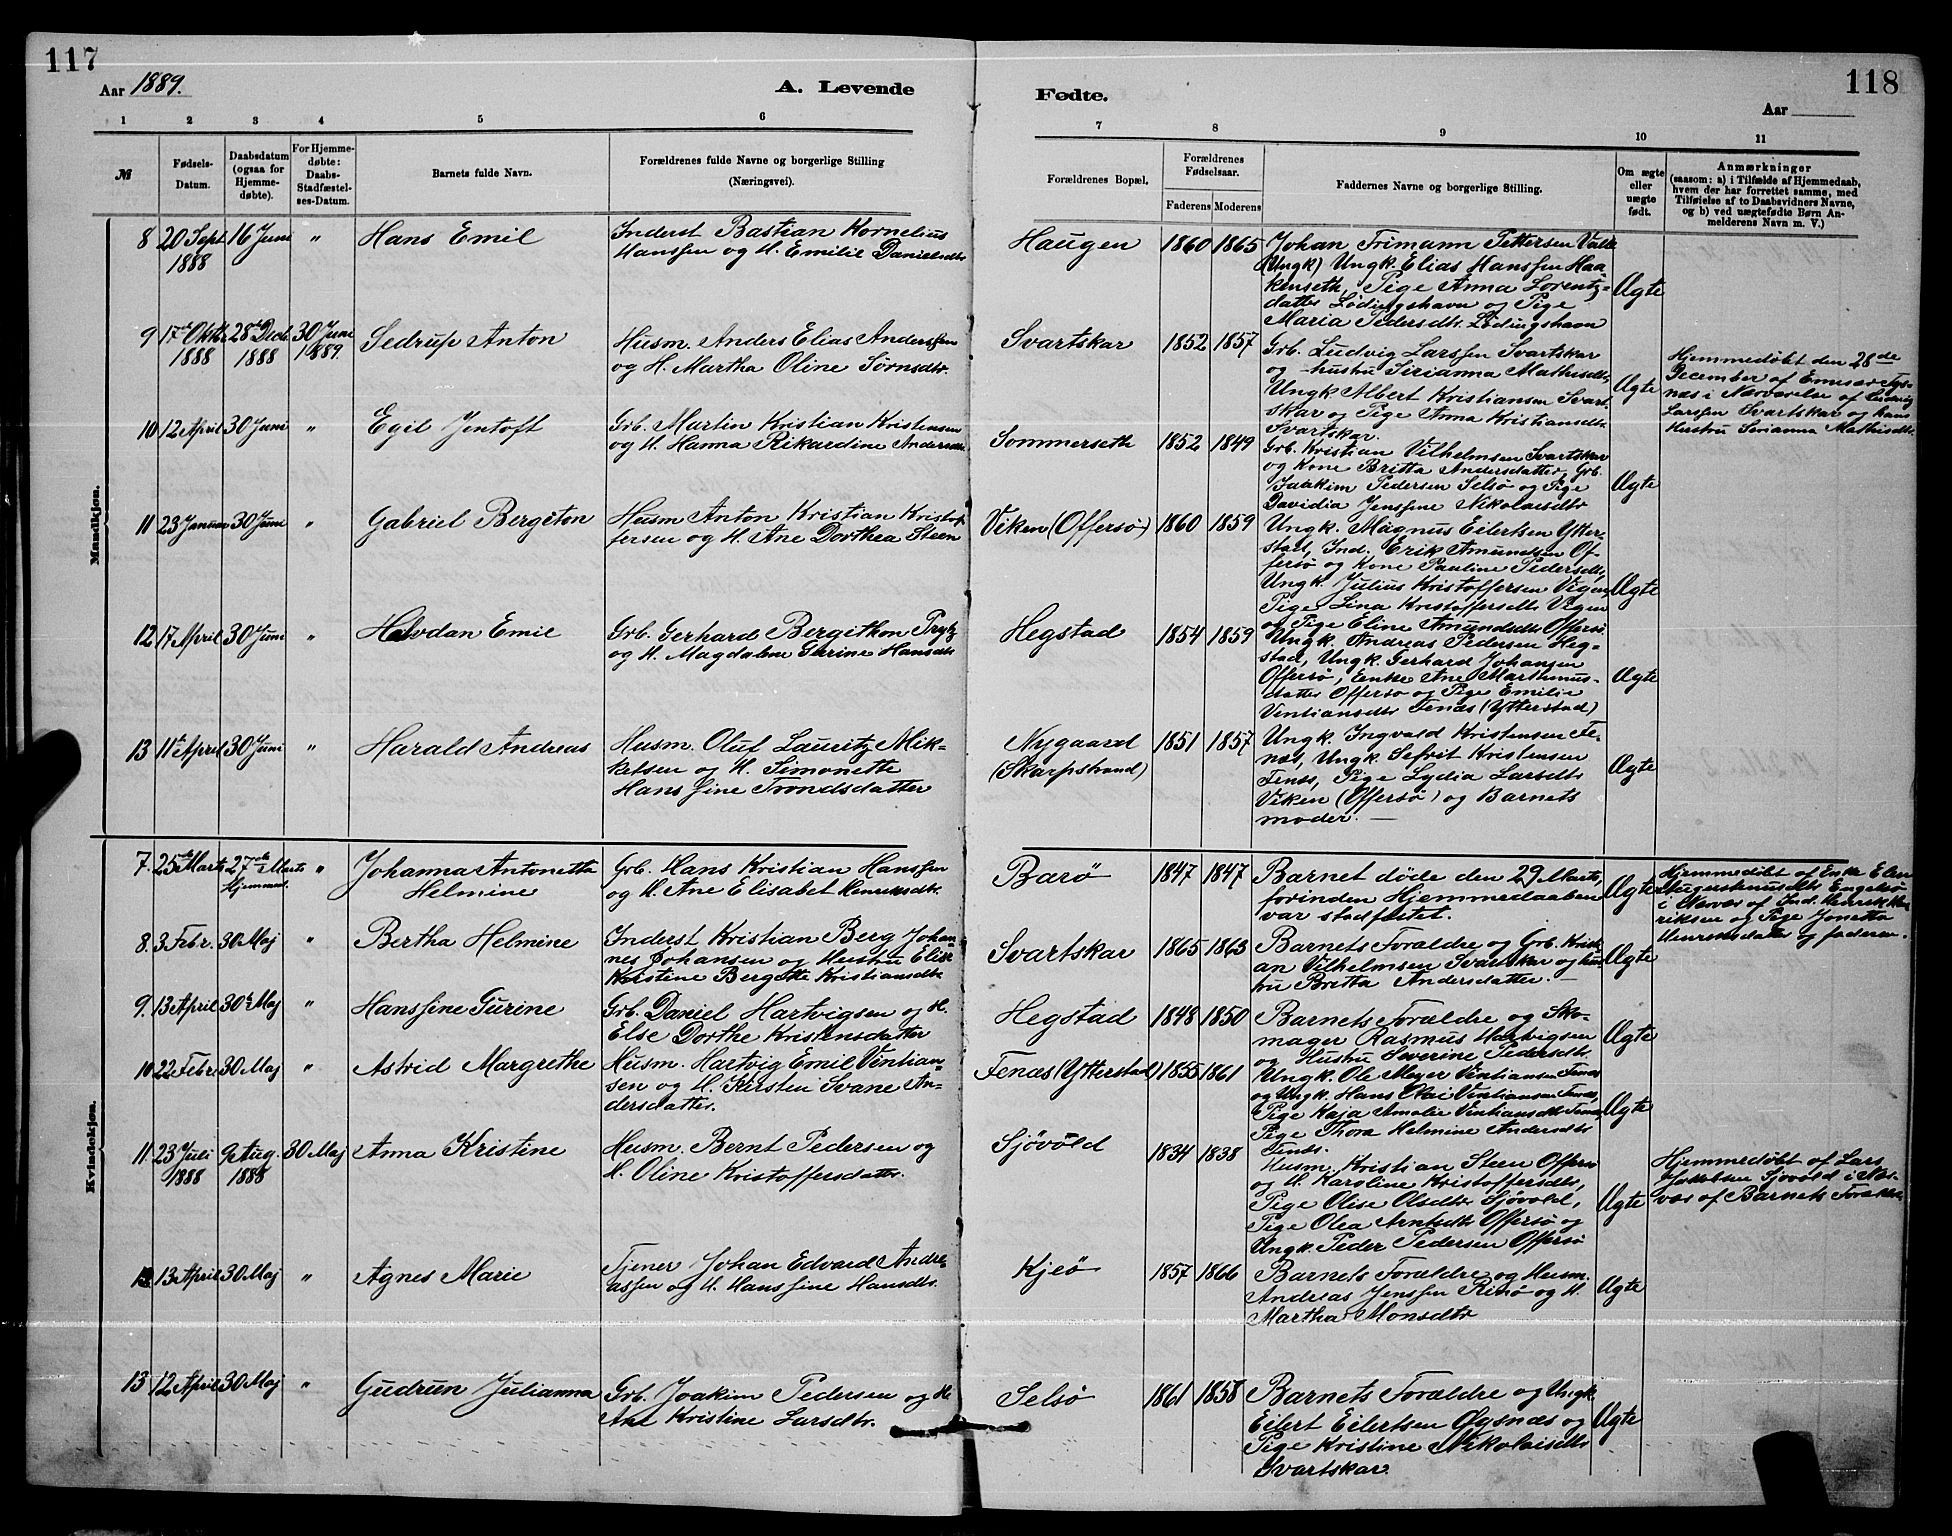 117
Aar 1889.
A. Levende
1 2 3 4 5 6
№
Fødsels-
Datum.
Daabsdatum
(ogsaa for
Hjemme-
døbte).
For Hjemme-
døbte:
Daabs-
Stadfæstel-
ses-Datum.
Barnets fulde Navn.
Forældrenes fulde Navne og borgerlige Stilling
(Næringsvei).
Mandkjøn.
8 20 Sept 16 Juni " Hans Emil Inderst Bastian Kornelius
1888 Hanssen og H. Emilie Danielsdtr
9 17de Oktbr. 28de Decb. 30 Juni Sedrup Anton Husm. Anders Elias Anderssen
1888 1888 1889. og H. Martha Oline Sørnsdtr.
10 12 April 30 Juni " Egil Jentoft Grb. Martin Kristian Kristensen
og H. Hanna Rikardine Andersdtr.
11 23 Januar 30 Juni " Gabriel Bergiton Husm Anton Kristian Kristof
fersen og H. Ane Dorthea Steen
12 17 April 30 Juni " Halvdan Emil Grb. Gerhard Bergithon Prytz
og H. Magdalene Gurine Hansdtr
13 11te April 30 Juni " Harald Andreas Husm. Oluf Lauritz Mik-
kelsen og H. Simonette
Hanssine Trondsdatter
Kvindekjøn.
7. 25de Marts 27de Marts " Johanna Antonetta Grb. Hans Kristian Hanssen
Hjemmed. Helmine og H. Ane Elisabet Henriksdtr.
8. 3 Febr. 30 Maj " Bertha Helmine Inderst Kristian Berg Johan-
nes Johansen og Hustru Elise
Kristine Bergitte Kristiansdtr
9. 13 April 30te Maj " Hanssine Gurine Grb. Daniel Hartvigsen og H.
Else Dorthe Kristensdatter
10 22 Febr. 30 Maj " Astrid Margrethe Husm. Hartvig Emil Ventian-
sen og H. Kirsten Svane An-
dersdatter.
11 23 Juli 9 Aug. 30 Maj Anna Kristine Husm. Bernt Pedersen og
1888 1888 H. Oline Kristoffersdatter.
12 13 April 30 Maj " Agnes Marie Tjener Johan Edvard Andre
assen og H. Hanssine Hansdtr.
13 12 April 30 Maj " Gudrun Julianna Grb. Joakim Pedersen og H
Ane Kristine Larsdtr.
118
Fødte.
Aar
7 8 9 10 11
Forældrenes Bopæl.
Forældrenes
Fødselsaar.
Faderens Moderens
Faddernes Navne og borgerlige Stilling.
Om ægte
eller
uægte
født.
Anmærkninger
(saasom: a) i Tilfælde af Hjemmedaab,
hvem der har forrettet samme, med
Tilføielse af to Daabsvidners Navne,
og b) ved uægtefødte Børn An-
melderens Navn m. V.)
Haugen 1860 1865 Johan Trimann Pettersen Valle
(Ungk) Ungk. Elias Hanssen Haa
kenseth, Pige Anna Lorentz-
datter Lødingshavn og Pige
Maria Pedersdtr. Lødingshavn
Ægte
Svartskar 1852 1857 Grb. Ludvig Larssen Svartskar
og hustru Serianna Mathisdtr,
Ungk Albert Kristiansen Svart-
skar og Pige Anna Kristiansdtr.
Svartskar.
Ægte
Hjemmedøbt den 28de
December af Emissær Tys-
nes i Nærværelse af Ludvig
Larssen Svartskar og hans
Hustru Serianna Mathisdtr.
Sommerseth 1852 1849 Grb. Kristian Vilhelmsen Svartskar
og Kone Britta Andersdatter, Grb.
Joakim Pedersen Selsø og Pige
Davidia Jenssine Nikolaisdtr
Ægte
Viken (Offersø) 1860 1859 Ungk. Magnus Eilertsen Ytter-
stad, Ind. Erik Amundsen Of-
fersø og Kone Pauline Pedersdtr,
Ungk. Julius Kristoffersen Vigen,
Pige Lina Kristoffersdtr Vigen
og Pige Eline Amundsdtr Offersø.
Ægte
Hegstad 1854 1859 Ungk. Andreas Pedersen Heg-
stad, Ungk. Gerhard Johansen
Offersø, Enke Ane Marthinus-
datter Offersø og Pige Emilie
Ventiansdtr Fenæs (Ytterstad)
Ægte
Nygaard 1851 1857 Ungk. Ingvald Kristensen Fe-
(Skarpstrand) næs, Ungk. Sefrit Kristensen
Fenæs, Pige Lydia Larsdtr
Viken (Offersø) og Barnets
moder. —
Ægte
Barø 1847 1847 Barnet døde den 29 Marts,
forinden Hjemmedaaben
var stadfæstet.
Ægte
Hjemmedøbt af Enke Elen
Augustinusdtr Engelsø
i Nærvær af Ind. Henrik Hen
riksen og Pige Jonetta
Henriksdatter og faderen.
Svartskar 1865 1863 Barnets Forældre og Grb. Kristi
an Vilhelmsen Svartskar og hus-
tru Britta Andersdatter. —
Ægte
Hegstad 1848 1850 Barnets Forældre og Sko-
mager Rasmus Hartvigsen
og Hustru Severine Pedersdtr.
Ægte
Fenæs (Ytterstad) 1855 1861 Ungk. Ole Meyer Ventiansen Fenæs
og Ungk. Hans Olai Ventiansen Fenæs,
Pige Kaja Amalie Ventiansdtr Fenæs,
Pige Thora Helmine Andersdtr
Fenæs.
Ægte
Sjøvold 1834 1838 Husm. Kristian Steen Offersø
og H. Karoline Kristoffersdtr,
Pige Olise Olsdtr Sjøvold,
Pige Olea Arntsdtr Offersø og
Ungk. Peder Pedersen Offersø
Ægte
Hjemmedøbt af Lars
Jakobsen Sjøvold i Nær-
vær af Barnets Forældre
Kjeø 1857 1866 Barnets Forældre og Husm.
Andreas Jenssen Rinø og H.
Martha Monsdtr
Ægte
Selsø 1861 1858 Barnets Forældre og Ungk.
Eilert Eilertsen Øgsnæs og
Pige Kristine Nikolaisdtr
Svartskar.
Ægte